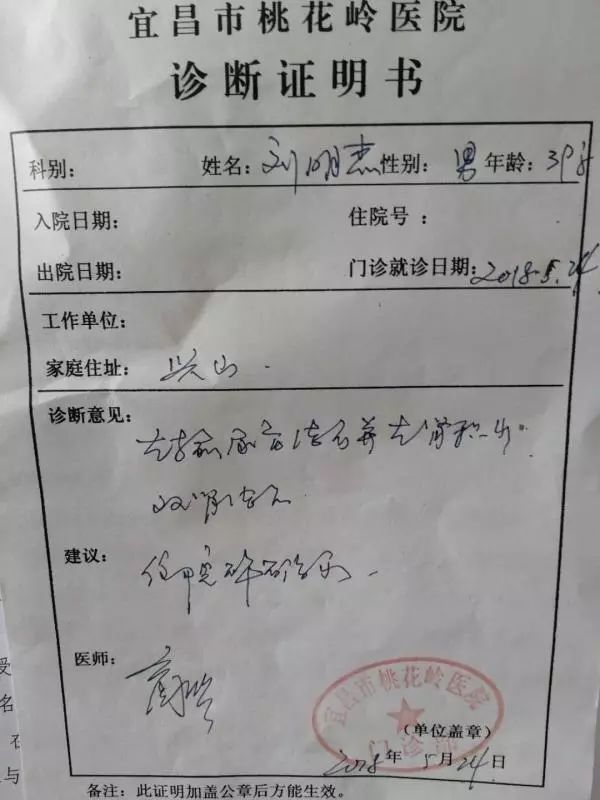 宜昌市桃花岭医院
诊断证明书
科别: 姓名: 刘明杰 性别: 男 年龄: 39岁
入院日期: 住院号:
出院日期: 门诊就诊日期: 2018.5.24
工作单位:
家庭住址: 兴山.
诊断意见: 左输尿管结石并左肾积水
双肾结石
建议: 住院碎石治疗.
医师:
宜昌市桃花岭医院
门诊部
(单位盖章)
2018年5月24日
备注: 此证明加盖公章后方能生效。
授
名
与